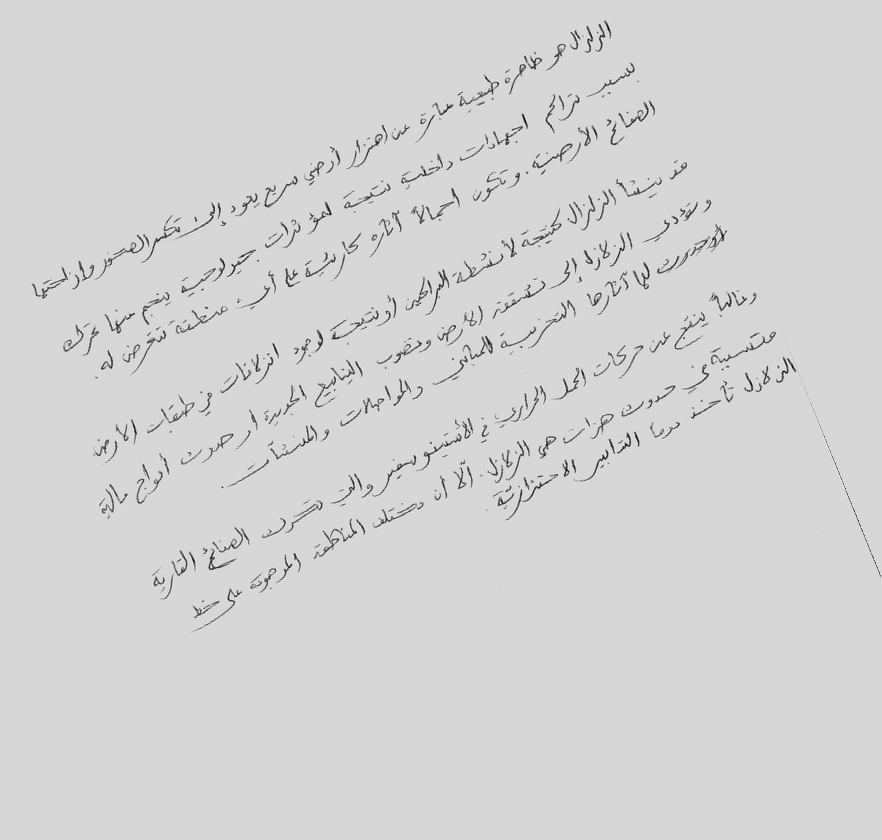 الزلزال هو ظاهرة طبيعية عبارة عن اهتزاز أرضي سريع يعود إلى تكسر الصخور وازاحتها
بسبب تراكم اجهادات داخلية نتيجة لمؤثرات جيولوجية ينجم عنها تحرك
الصفائح الأرضية. وتكون اجمالاً آثاره كارثية على أي منطقة تتعرض له.
قد ينشأ الزلزال كنتيجة لأنشطة البراكين أو نتيجة لوجود انزلاقات في طبقات الأرض
وتؤدي الزلازل إلى تشقق الأرض ونضوب الينابيع الجديدة أو حدوث أمواج عالية
لها آثارها التخريبية للمباني والمواصلات والمنشآت.
وغالباً ينتج عن حركات الحمل الحراري في الأستينوسفير والتي تحرك الصفائح القارية
متسببة في حدوث هزات هي الزلازل. ألا أن مختلف المناطق الموجودة على خط
الزلازل تأخذ دوما التدابير الاحترازية.